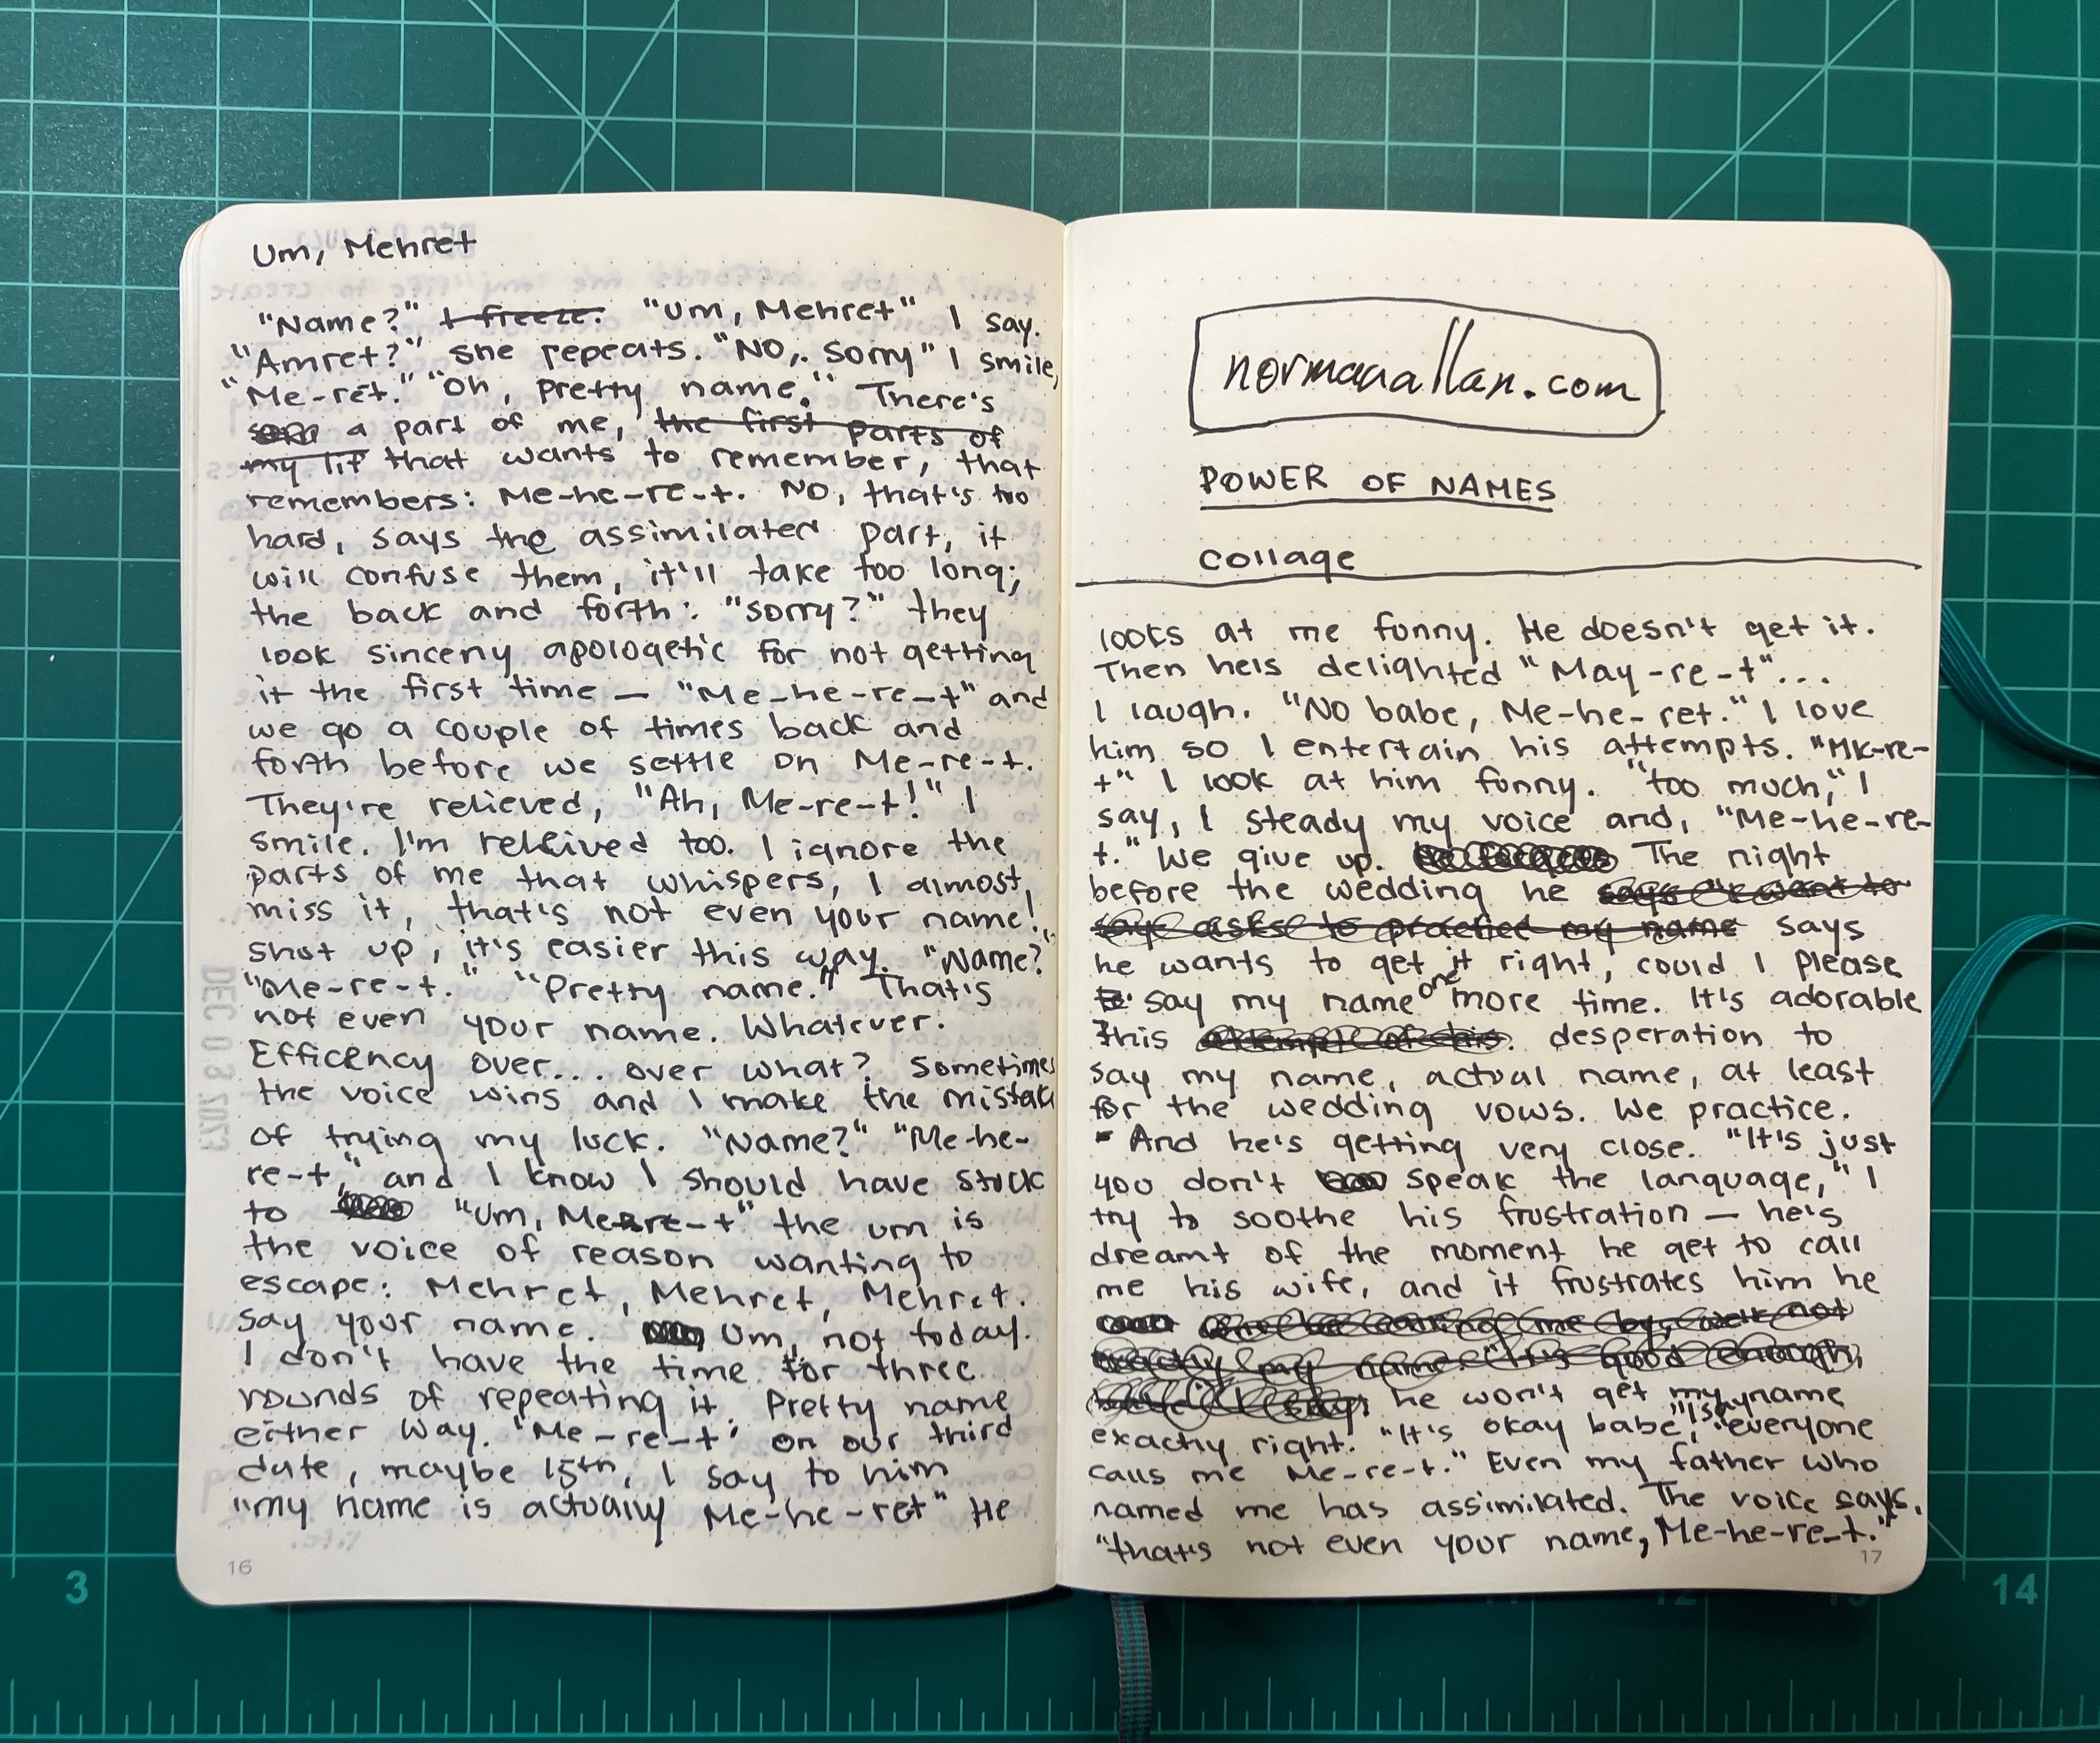 Um, Mehret
"Name?" I freeze. "Um, Mehret" I say.
"Amret?" she repeats. "No, sorry" I smile,
"Me-ret." "Oh, pretty name." There's
a part of me, the first parts of
my lif that wants to remember, that
remembers: Me-he-re-t. No, that's too
hard, says the assimilated part, it
will confuse them, it'll take too long;
the back and forth: "sorry?" they
look sincerly apologetic for not getting
it the first time — "Me-he-re-t" and
we go a couple of times back and
forth before we settle on Me-re-t.
They're relieved, "Ah, Me-re-t!" I
smile. I'm releived too. I ignore the
parts of me that whispers, I almost
miss it, that's not even your name!
shut up, it's easier this way. "Name?"
"Me-re-t." "Pretty name." That's
not even your name. Whatever.
Efficency over... over what? Sometimes
the voice wins and I make the mistak
of trying my luck. "Name?" "Me-he-
re-t," and I know I should have stuck
to "Um, Mehre-t" the um is
the voice of reason wanting to
escape: Mehret, Mehret, Mehret.
Say your name. Um, not today.
I don't have the time for three
rounds of repeating it. Pretty name
either way. "Me-re-t" on our third
date, maybe 15th, I say to him
"my name is actually Me-he-ret" He
16
DEC 0 3 2023
normanallan.com
POWER OF NAMES
Collage
looks at me funny. He doesn't get it.
Then heis delighted "May-re-t"...
I laugh. "No babe, Me-he-ret." I love
him so I entertain his attempts. "Mk-re-
t" I look at him funny. "too much," I
say, I steady my voice and, "Me-he-re-
t." We give up. The night
before the wedding he says "I want to
says asks to practied my name says
he wants to get it right, could I please
say my name one more time. It's adorable
this attempt of his. desperation to
say my name, actual name, at least
for the wedding vows. We practice.
And he's getting very close. "It's just
you don't speak the language," I
try to soothe his frustration — he's
dreamt of the moment he get to call
me his wife, and it frustrates him he
he won't get my name
exactly right. "It's okay babe," I say, "everyone
calls me Me-re-t." Even my father who
named me has assimilated. The voice says,
"that's not even your name, Me-he-re-t."
17
3
12
13
14